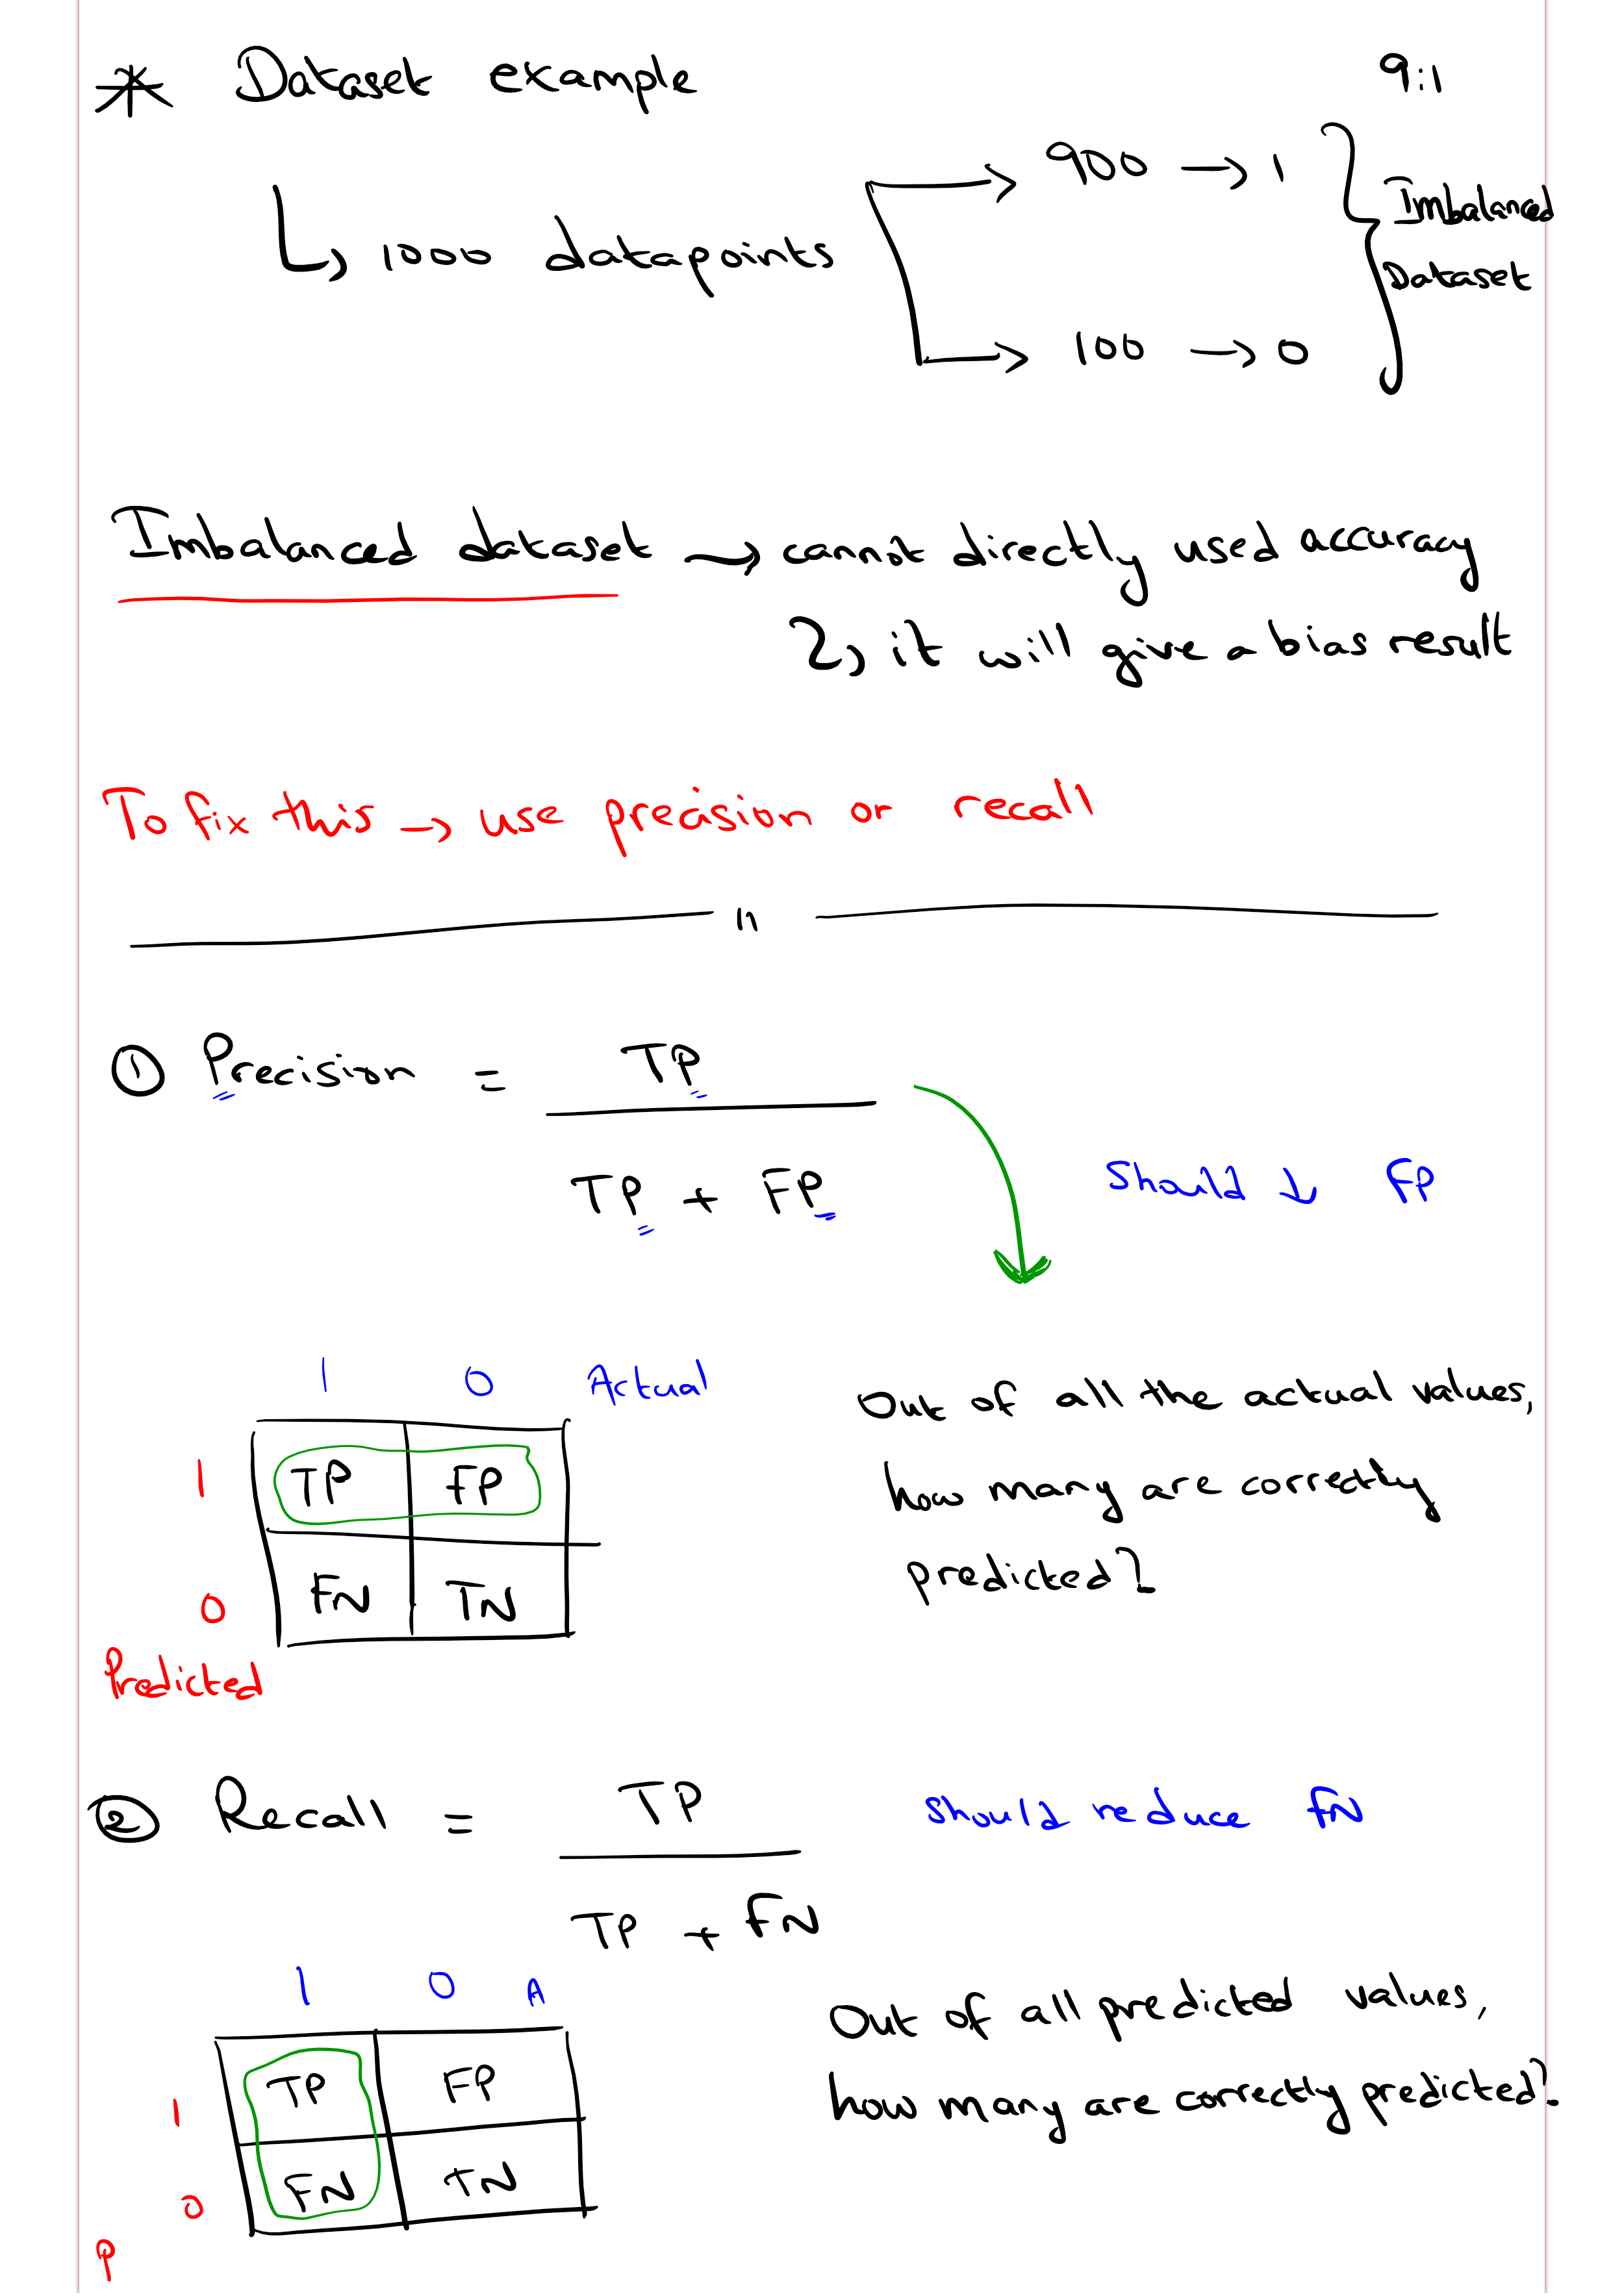 * Dataset example 9:1
900 → 1
Imbalanced
↳ 1000 datapoints
Dataset
100 → 0
Imbalanced dataset → cannot directly used accuracy
↳ it will give a bias result
To fix this → use precision or recall
① Precision = TP
TP + FP
Should ↓ FP
1 0 Actual
1 TP FP
0 FN TN
Predicted
Out of all the actual values,
how many are correctly
predicted?
② Recall = TP
TP + FN
should reduce FN
1 0 A
1 TP FP
0 FN TN
P
Out of all predicted values,
how many are correctly predicted?